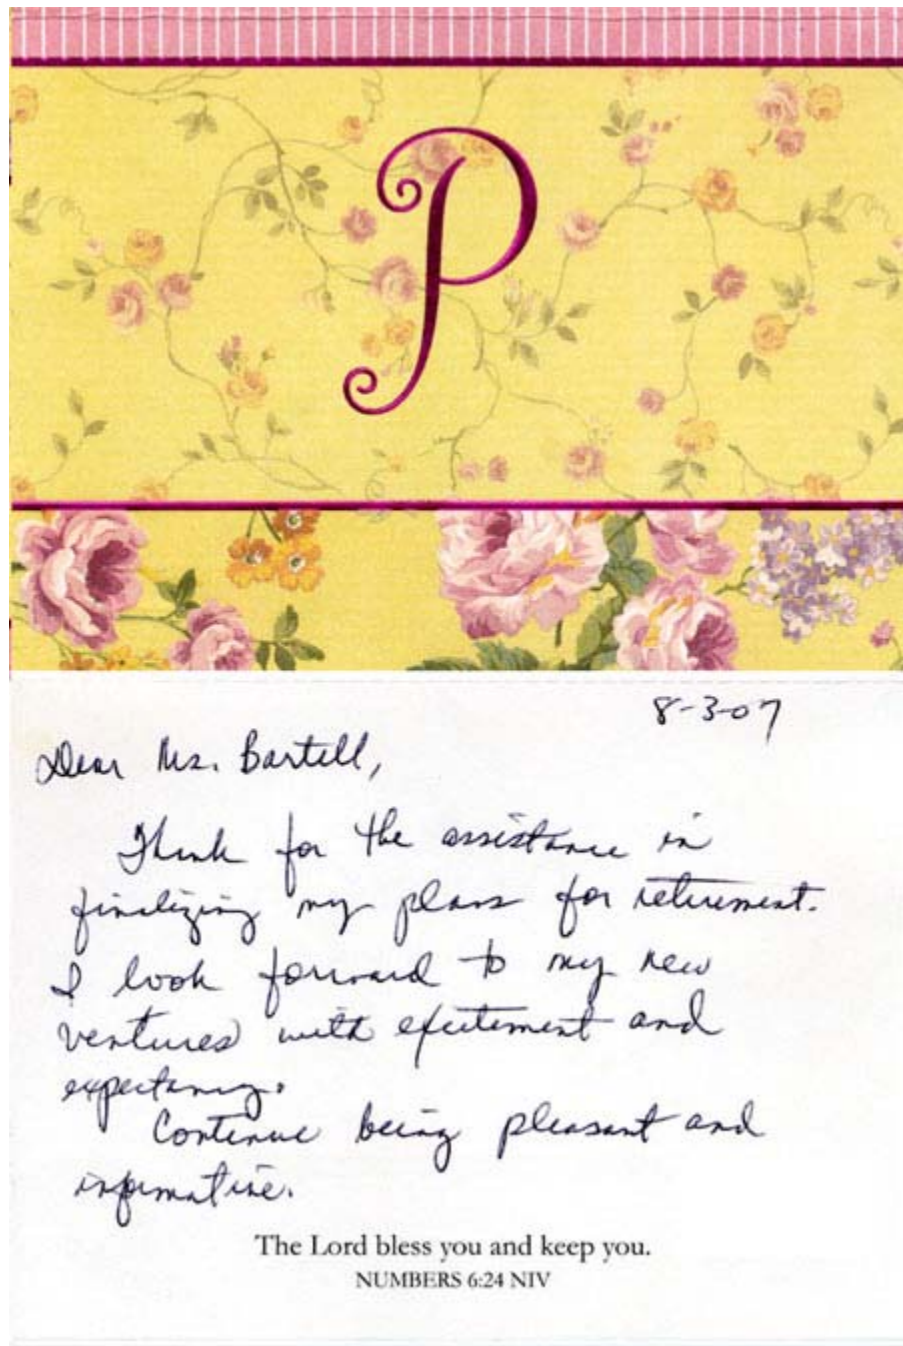 P
8-3-07
Dear Ms. Bartell,
Thank for the assistance in
finalizing my plans for retirement.
I look forward to my new
ventures with excitement and
expectancy.
Continue being pleasant and
informative.
The Lord bless you and keep you.
NUMBERS 6:24 NIV